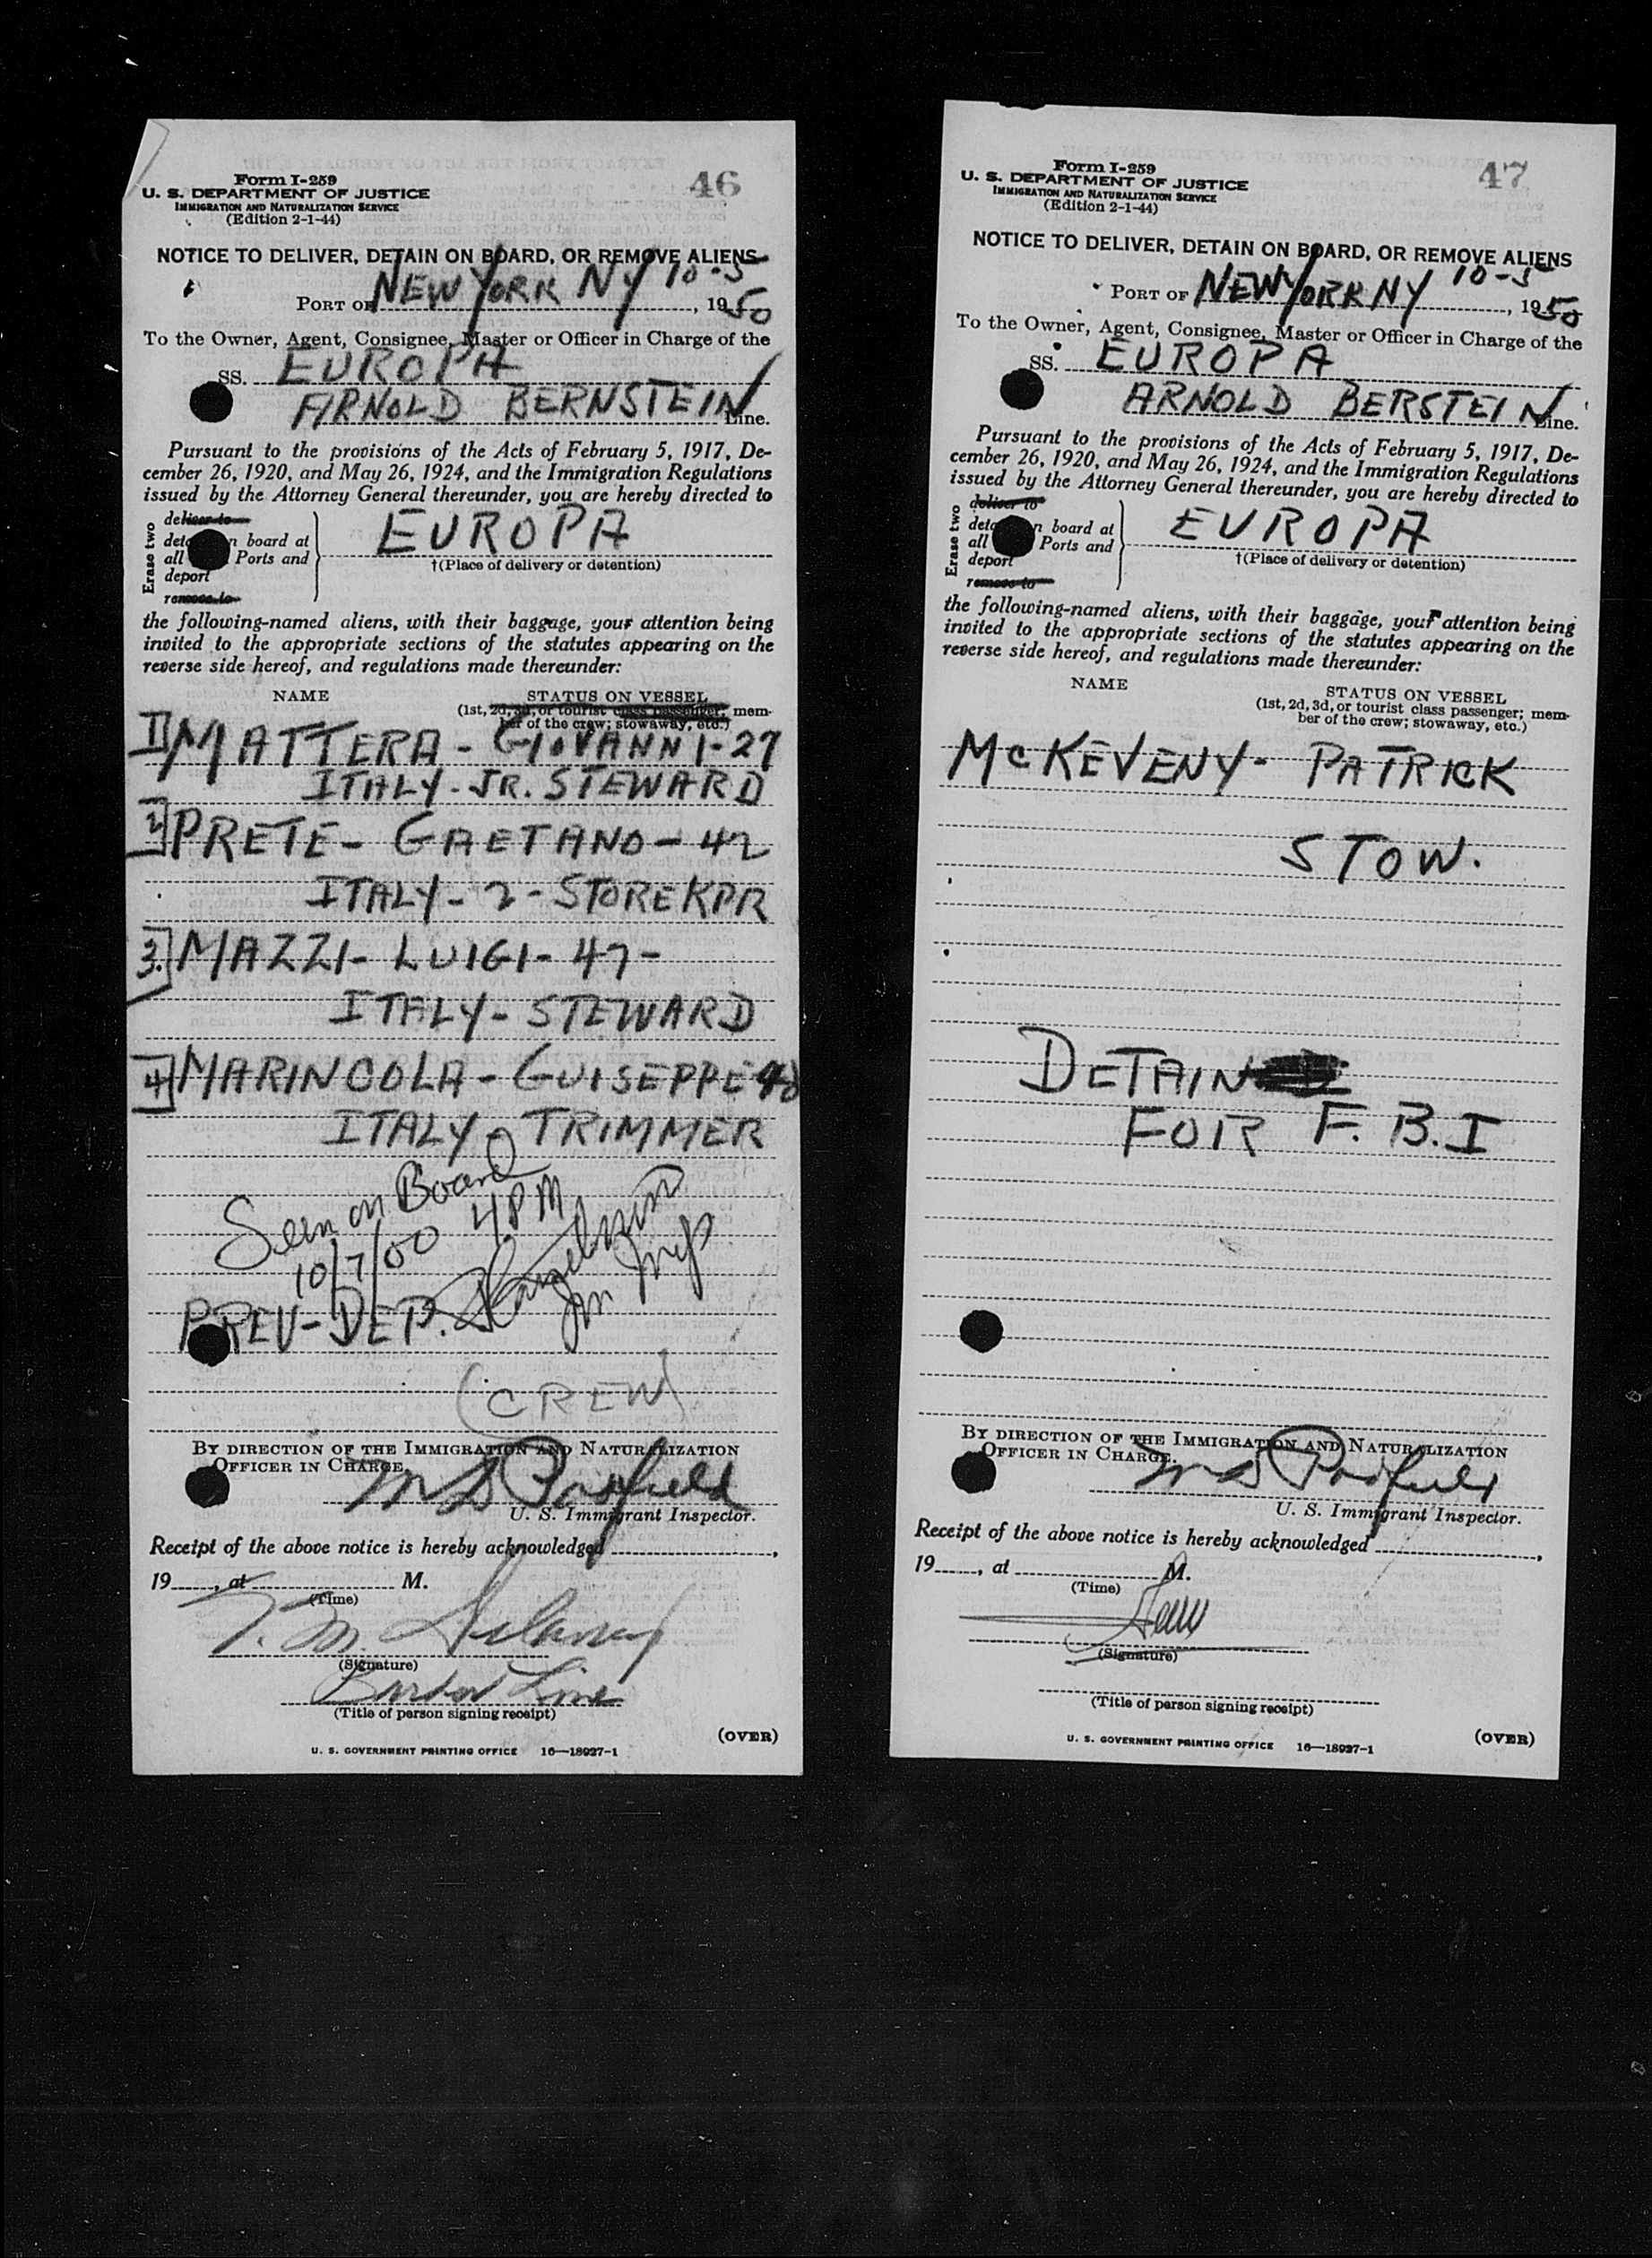 Form I-259
46
U. S. DEPARTMENT OF JUSTICE
IMMIGRATION AND NATURALIZATION SERVICE
(Edition 2-1-44)
NOTICE TO DELIVER, DETAIN ON BOARD, OR REMOVE ALIENS
PORT OF NEW YORK NY 10-5, 1950
To the Owner, Agent, Consignee, Master or Officer in Charge of the
SS. EUROPA
ARNOLD BERNSTEIN Line.
Pursuant to the provisions of the Acts of February 5, 1917, De-
cember 26, 1920, and May 26, 1924, and the Immigration Regulations
issued by the Attorney General thereunder, you are hereby directed to
Erase two
deliver to
n board at
all Ports and
deport
remove to
EUROPA
†(Place of delivery or detention)
the following-named aliens, with their baggage, your attention being
invited to the appropriate sections of the statutes appearing on the
reverse side hereof, and regulations made thereunder:
NAME STATUS ON VESSEL
(1st, 2d, 3d, or tourist class passenger; mem-
ber of the crew; stowaway, etc.)
1] MATTERA - GIOVANNI - 27
ITALY - JR. STEWARD
2] PRETE - GAETANO - 42
ITALY - 2 - STOREKPR
3.] MAZZI - LUIGI - 47 -
ITALY - STEWARD
4] MARINCOLA - GUISEPPE 48
ITALY - TRIMMER
Seen on Board
10/7/50 4 PM
PREV-DEP.
(CREW)
BY DIRECTION OF THE IMMIGRATION AND NATURALIZATION
OFFICER IN CHARGE.
U. S. Immigrant Inspector.
Receipt of the above notice is hereby acknowledged ,
19 , at M.
(Time)
(Signature)
Line
(Title of person signing receipt)
(OVER)
U. S. GOVERNMENT PRINTING OFFICE 16—18927-1
Form I-259
47
U. S. DEPARTMENT OF JUSTICE
IMMIGRATION AND NATURALIZATION SERVICE
(Edition 2-1-44)
NOTICE TO DELIVER, DETAIN ON BOARD, OR REMOVE ALIENS
PORT OF NEW YORK NY 10-5, 1950
To the Owner, Agent, Consignee, Master or Officer in Charge of the
SS. EUROPA
ARNOLD BERSTEIN Line.
Pursuant to the provisions of the Acts of February 5, 1917, De-
cember 26, 1920, and May 26, 1924, and the Immigration Regulations
issued by the Attorney General thereunder, you are hereby directed to
Erase two
deliver to
n board at
all Ports and
deport
remove to
EUROPA
†(Place of delivery or detention)
the following-named aliens, with their baggage, your attention being
invited to the appropriate sections of the statutes appearing on the
reverse side hereof, and regulations made thereunder:
NAME STATUS ON VESSEL
(1st, 2d, 3d, or tourist class passenger; mem-
ber of the crew; stowaway, etc.)
McKEVENY - PATRICK
STOW.
DETAIN
FOR F. B. I
BY DIRECTION OF THE IMMIGRATION AND NATURALIZATION
OFFICER IN CHARGE.
U. S. Immigrant Inspector.
Receipt of the above notice is hereby acknowledged ,
19 , at M.
(Time)
(Signature)
(Title of person signing receipt)
(OVER)
U. S. GOVERNMENT PRINTING OFFICE 16—18927-1